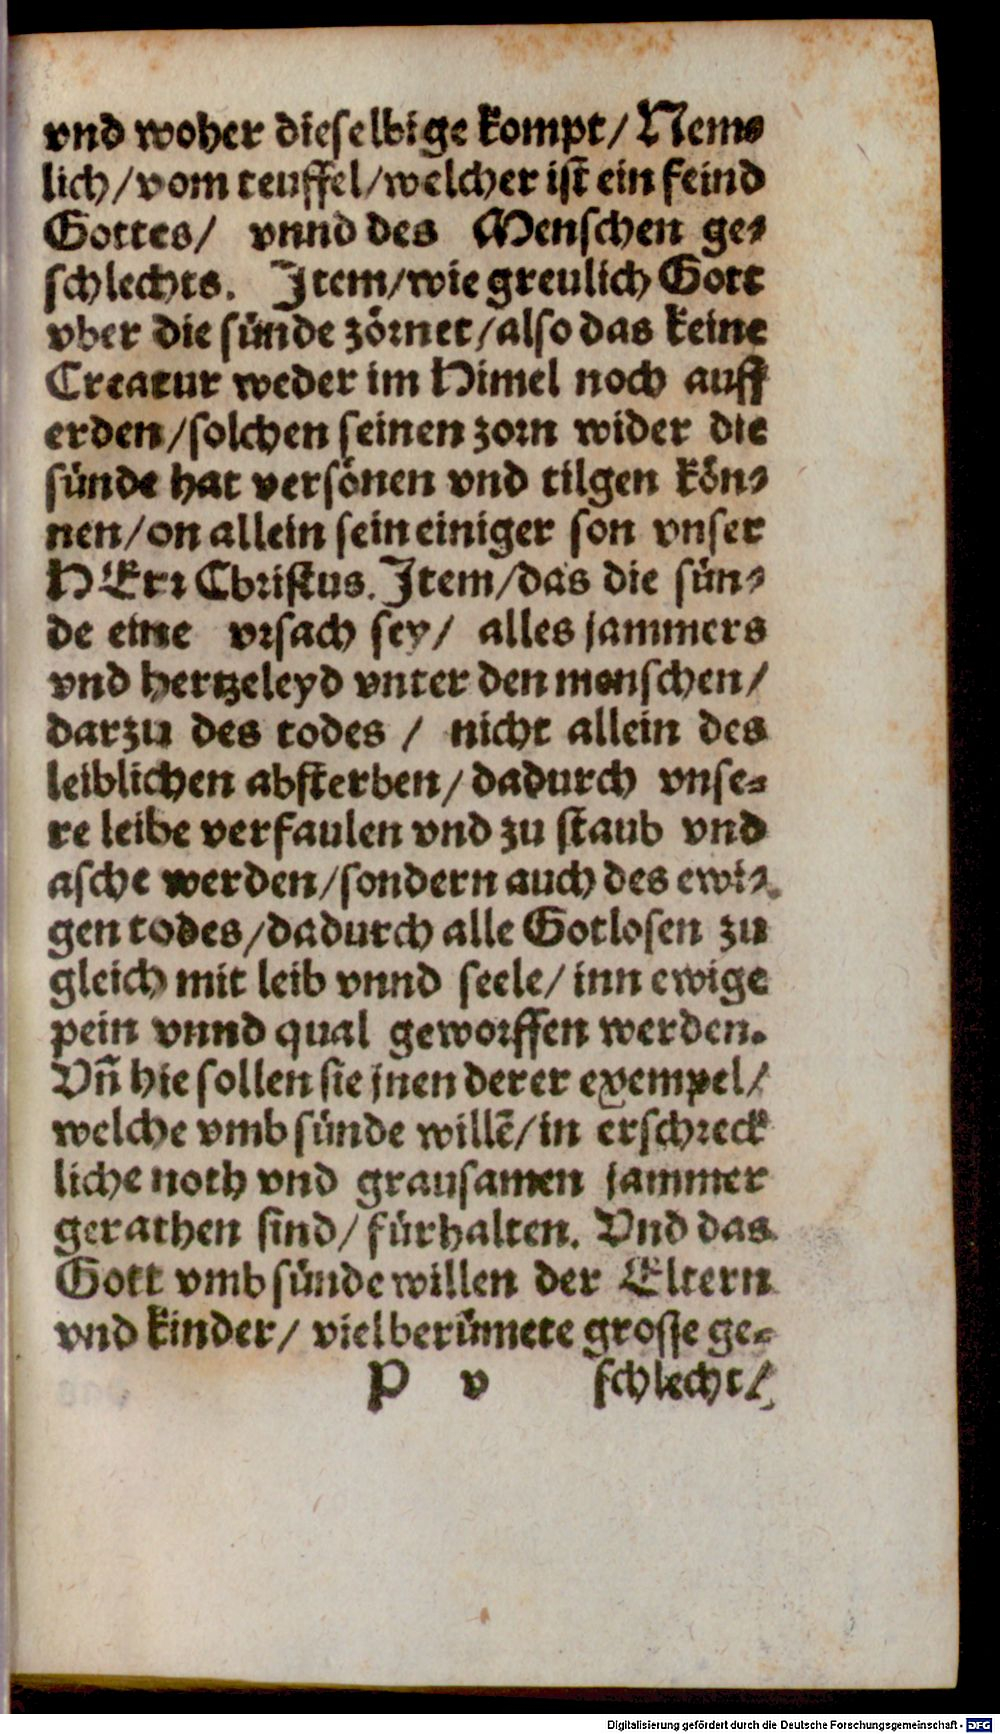 vnd woher dieselbige kompt/ Nem⸗
lich/ vom teuffel/ welcher ist ein feind
Gottes/ vnnd des Menschen ge⸗
schlechts. Item/ wie greulich Gott
vber die sünde zörnet/ also das keine
Creatur weder im Himel noch auff
erden/ solchen seinen zorn wider die
sünde hat versönen vnd tilgen kön⸗
nen/ on allein sein einiger son vnser
HErr Christus. Item/ das die sün⸗
de eine vrsach sey/ alles jammers
vnd hertzeleyd vnter den menschen/
darzu des todes / nicht allein des
leiblichen absterben/ dadurch vnse⸗
re leibe verfaulen vnd zu staub vnd
asche werden/ sondern auch des ewi⸗
gen todes/ dadurch alle Gotlosen zu
gleich mit leib vnnd seele/ inn ewige
pein vnnd qual geworffen werden.
Vñ hie sollen sie jnen derer exempel/
welche vmb sünde willẽ/ in erschreck
liche noth vnd grausamen jammer
gerathen sind/ fürhalten. Vnd das
Gott vmb sünde willen der Eltern
vnd kinder/ viel berümete grosse ge⸗
P v schlecht/
Digitalisierung gefördert durch die Deutsche Forschungsgemeinschaft - DFG